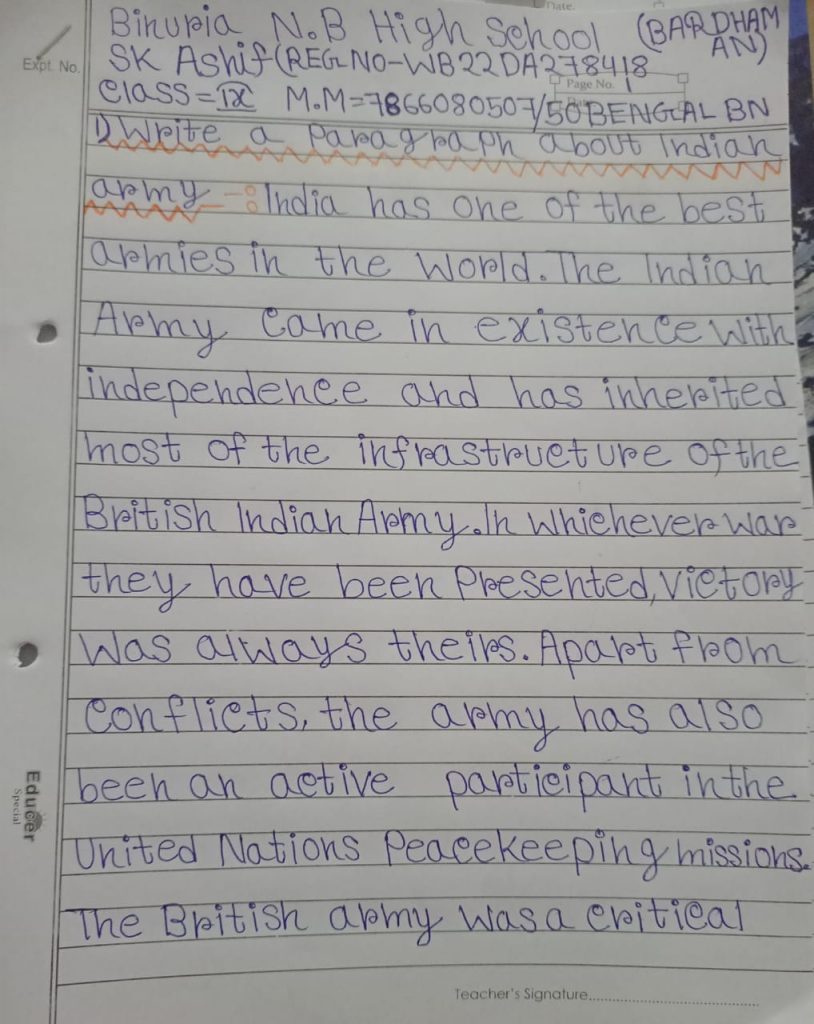 Date.
Binuria N.B High School (BARDHAM
AN)
Expt. No. SK Ashif (REG-NO-WB22DA278418
Page No. 1
Class=IX M.M=7866080507/50BENGAL BN
1) Write a Paragraph about Indian
army -: India has one of the best
armies in the World. The Indian
Army Came in existence with
independence and has inherited
most of the infrastructure of the
British Indian Army. In Whichever war
they have been Presented, Victory
Was always theirs. Apart from
Conflicts, the army has also
been an active participant in the
United Nations Peacekeeping missions.
The British army was a critical
Educer
Special
Teacher's Signature